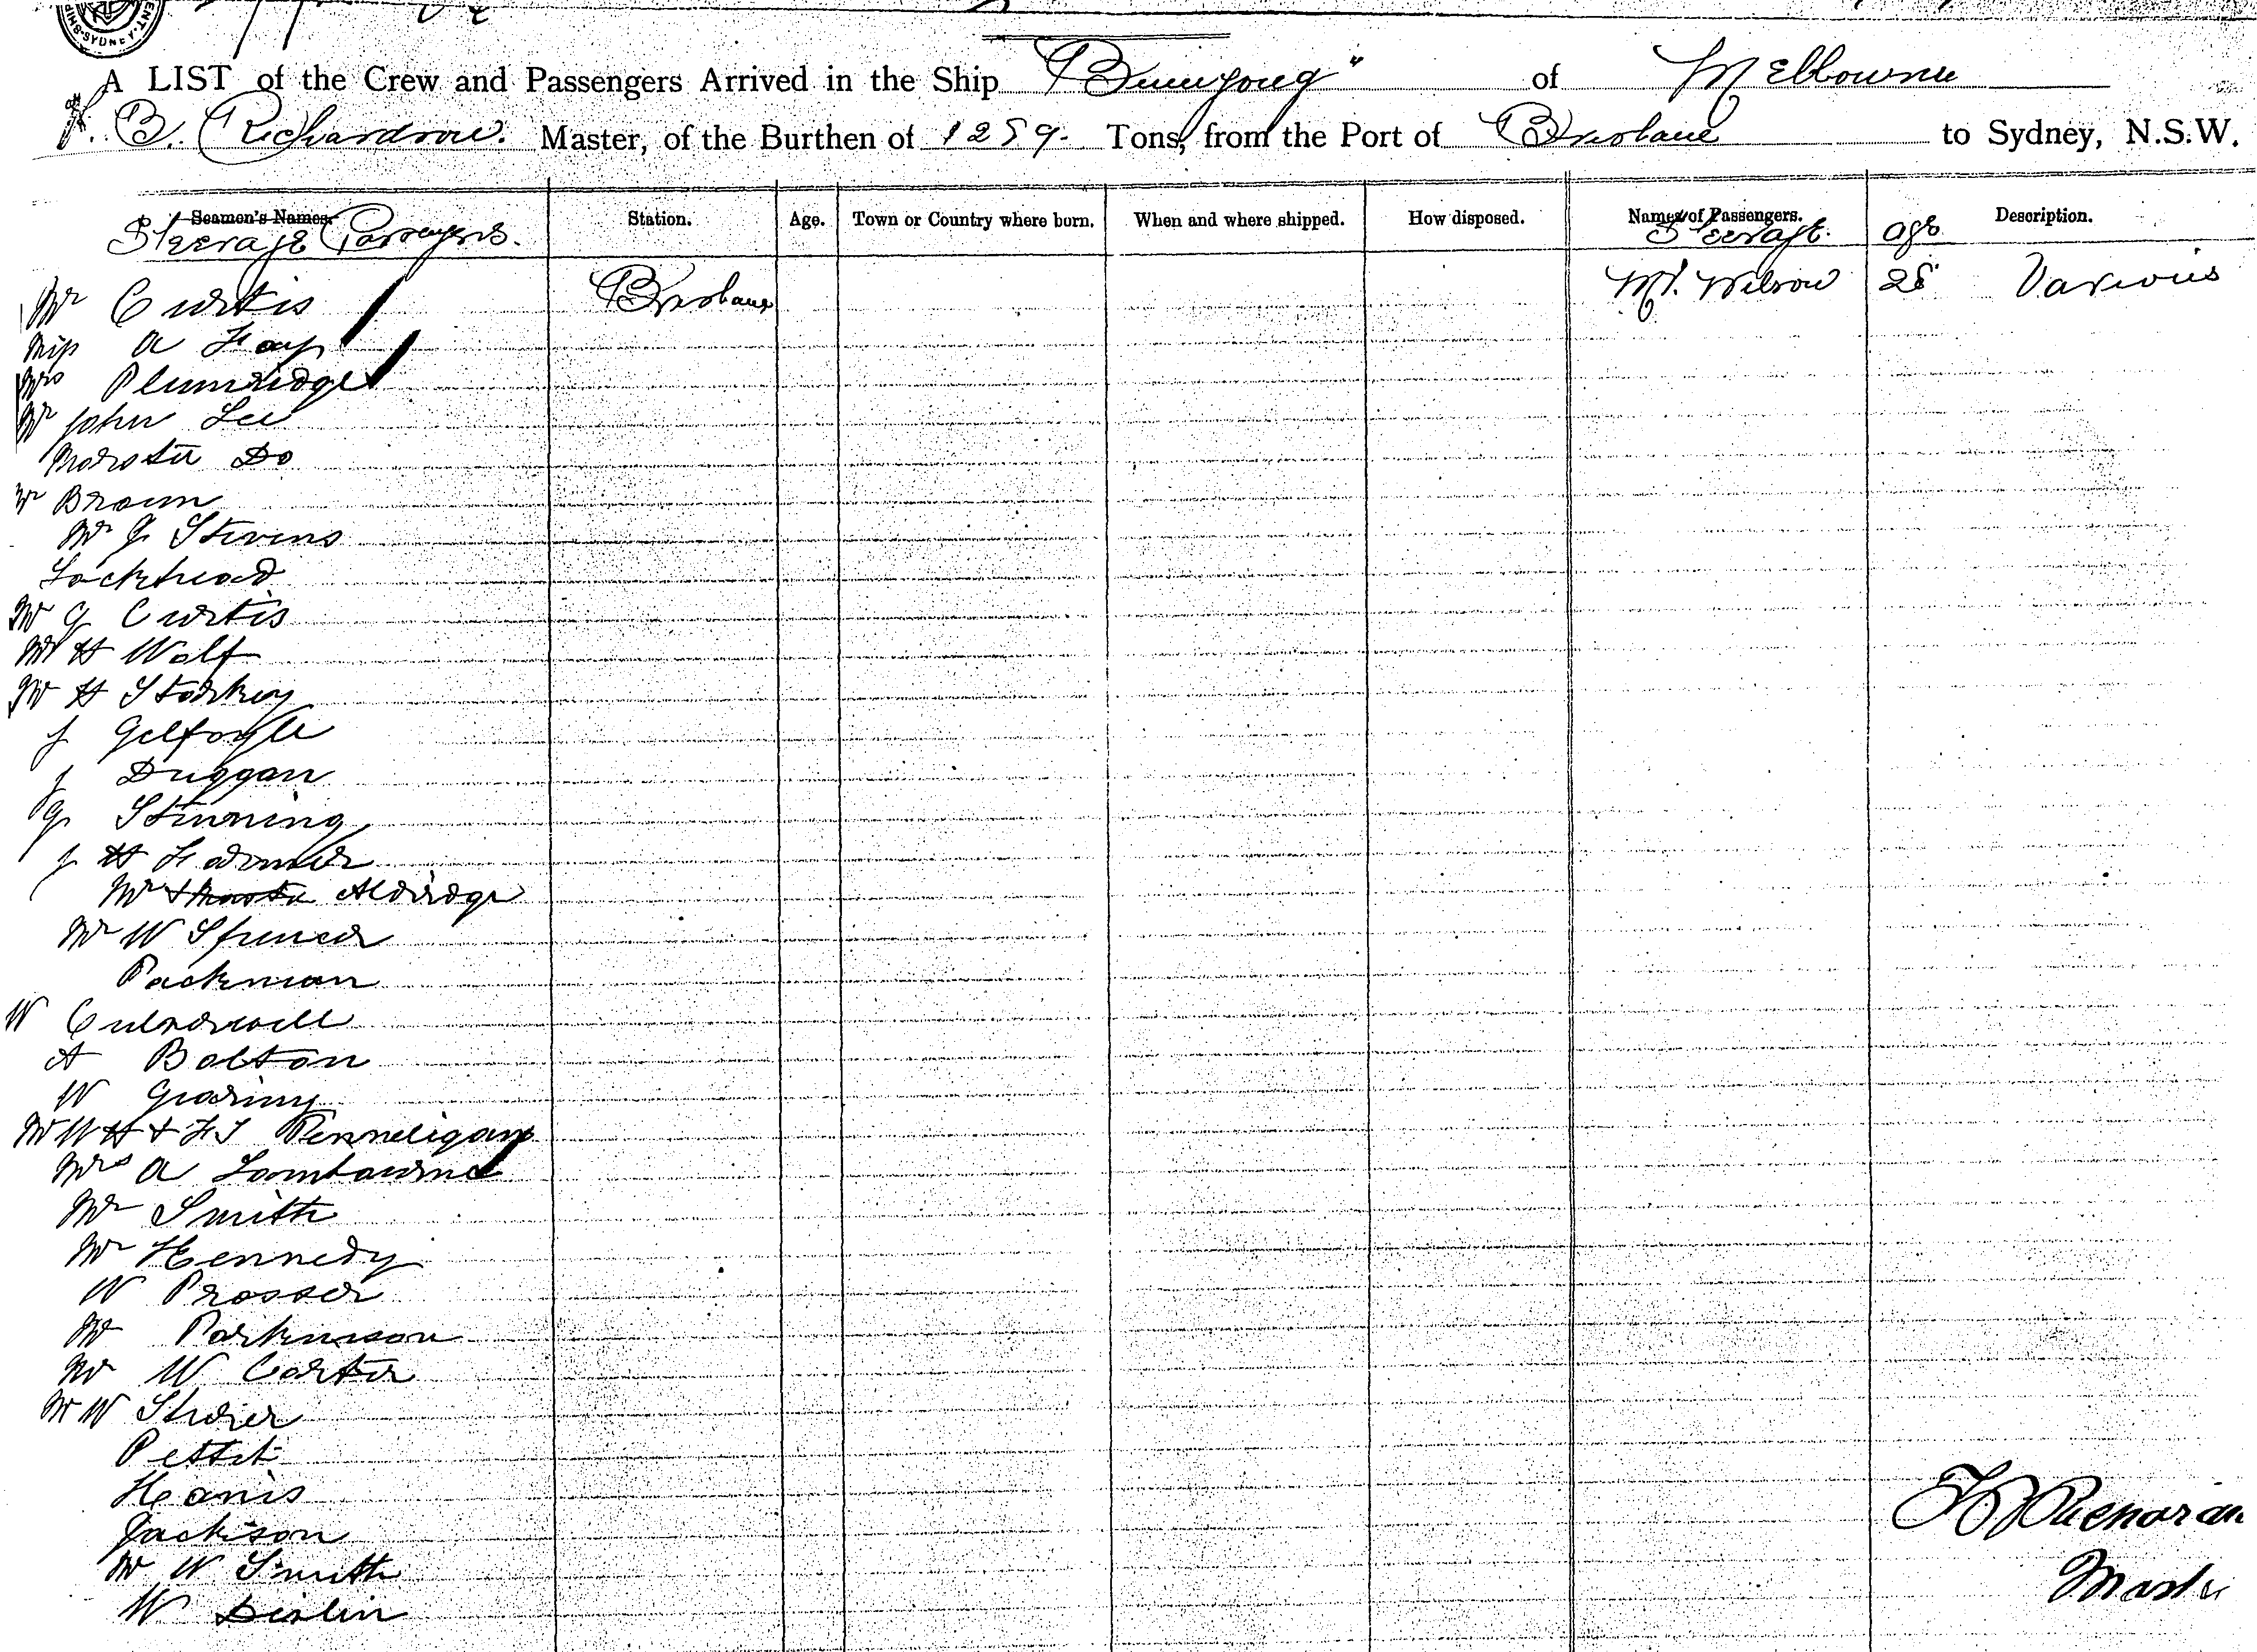 SYDNEY
A LIST of the Crew and Passengers Arrived in the Ship "Buninyong" of Melbourne
B. Richardson. Master, of the Burthen of 1259. Tons, from the Port of Brisbane to Sydney, N.S.W.
Seamen's Names. Station. Age. Town or Country where born. When and where shipped. How disposed. Names of Passengers. Age Description.
Steerage Passengers. Steerage.
Mr Curtis Brisbane Mr. Wilson 28 Various
Miss A Fay
Mrs Plumridge
Mr John Lee
Master Do
Mr Brown
Mr J Stevens
Lockhead
Mr G Curtis
Mr H Wolf
Mr H Starkey
J Gilfoyle
J Duggan
G Stenning
J H Farmer
Mr & Master Aldridge
Mr W Spencer
Packman
W
A Bolton
W
Mr W H & F J Penneligan
Mrs A Lambourne
Mr Smith
Mr Kennedy
W Prosser
Mr Parkinson
Mr W Carter
Mr W
Pettit
Harris
Jackson
Mr W Smith
W
Master